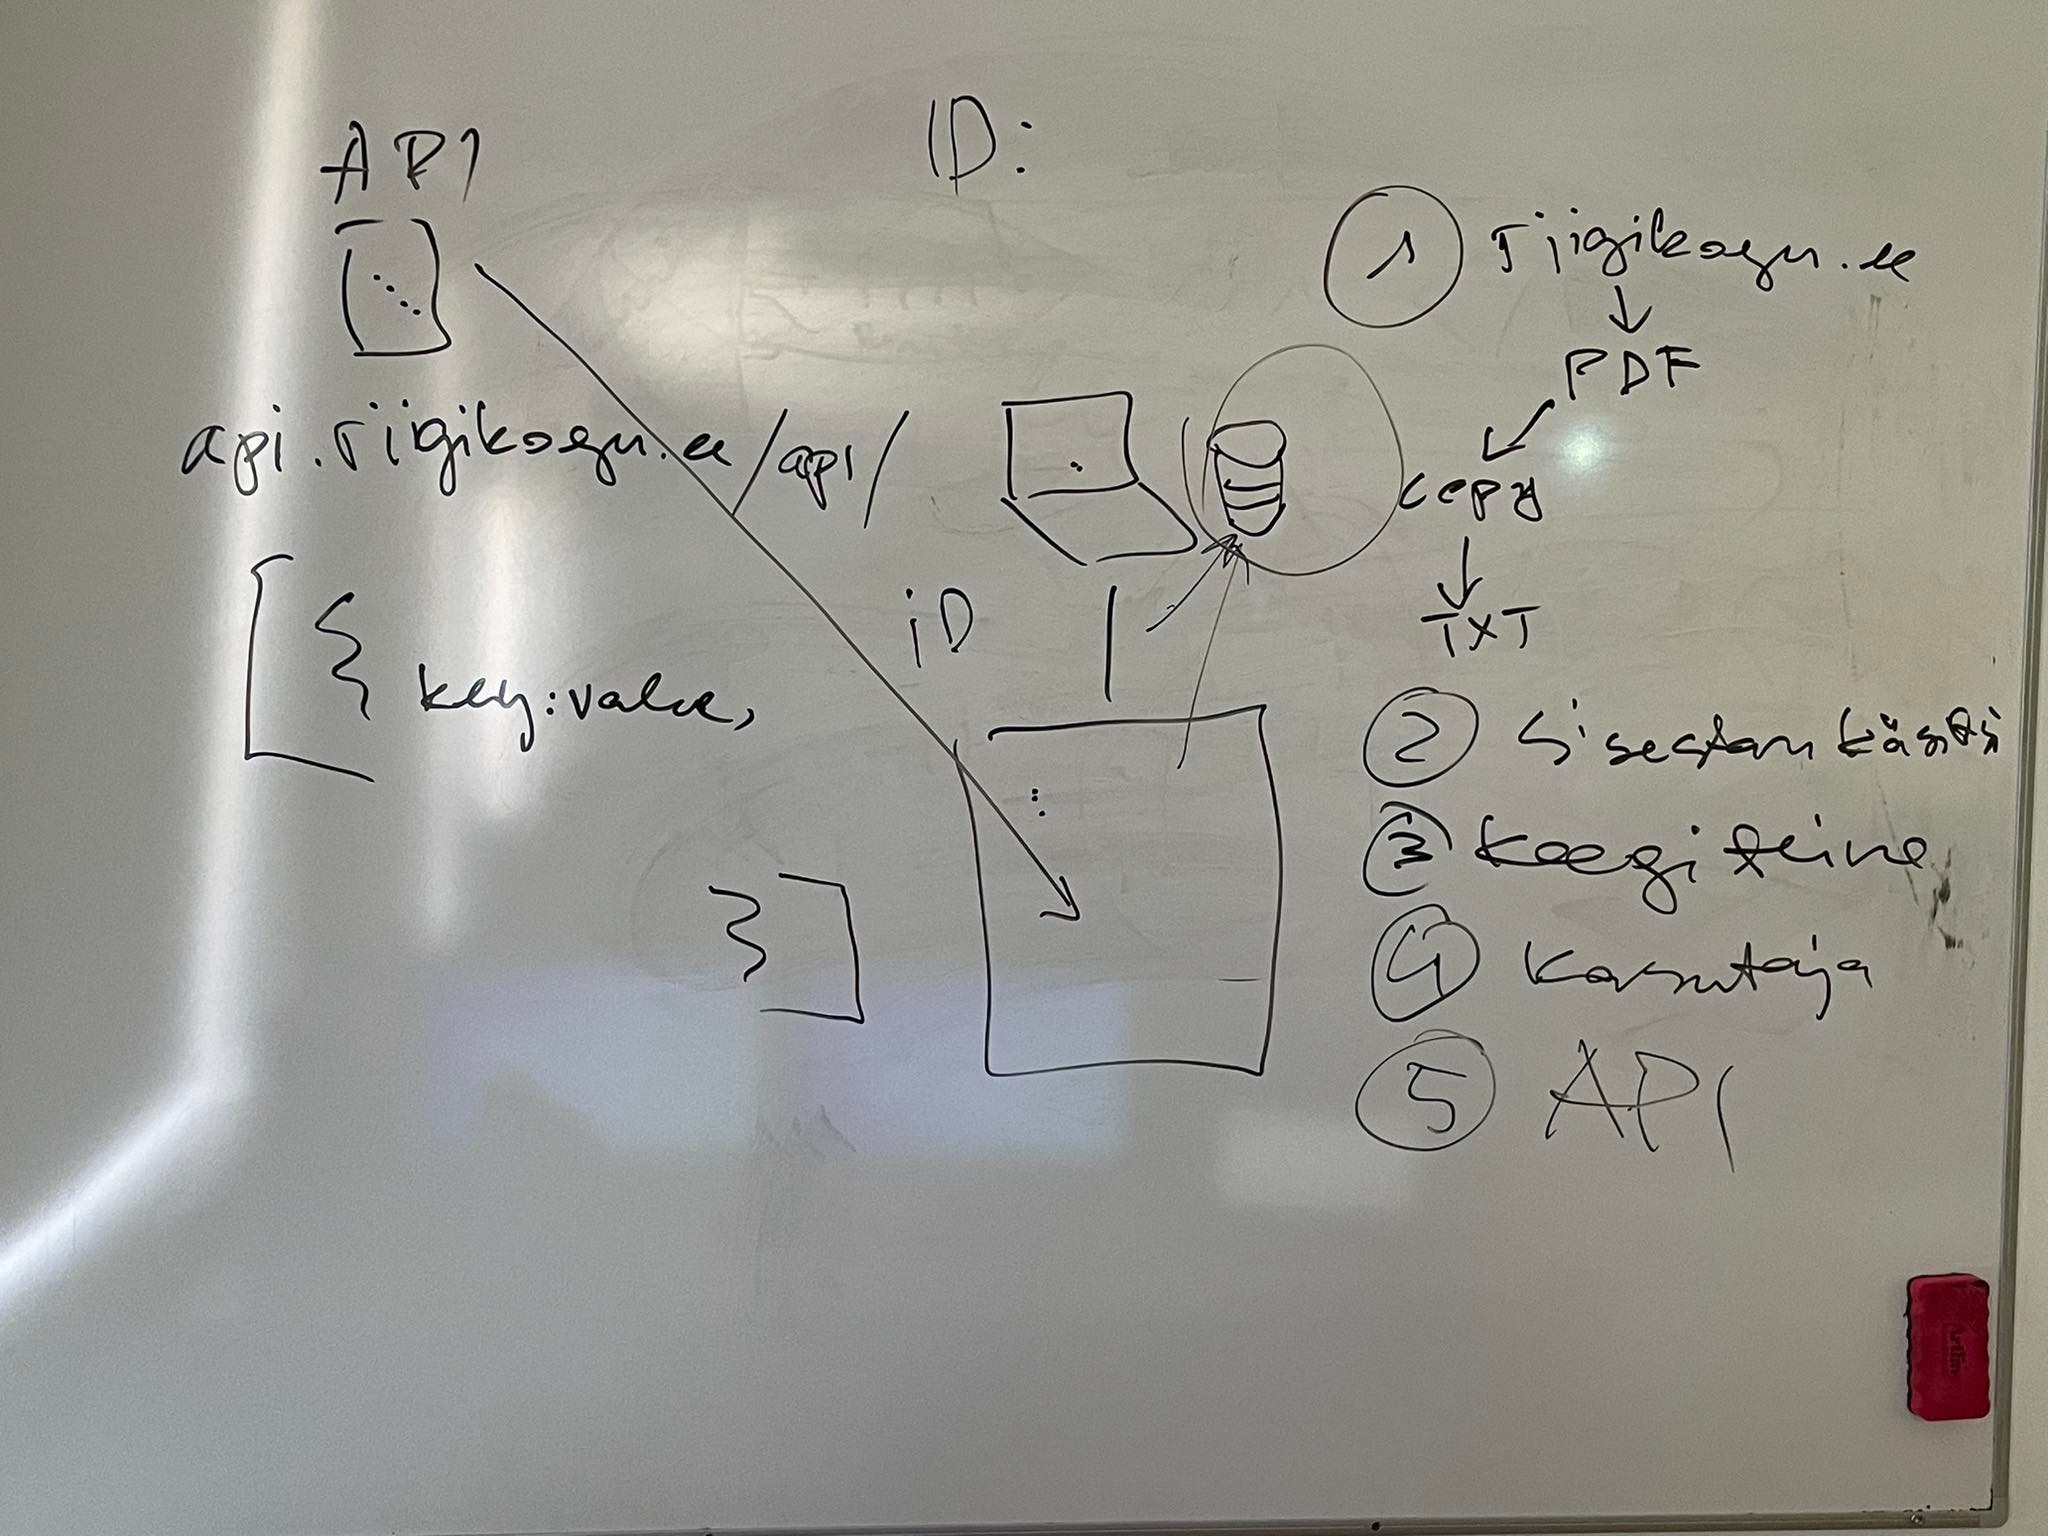 API
ID:
api.riigikogu.ee/api/
[ {
key:value,
} ]
iD
1 riigikogu.ee
↓
PDF
↙
copy
↓
TXT
2 Sisestan käsitsi
3 Keegi teine
4 Kasutaja
5 API
Artline